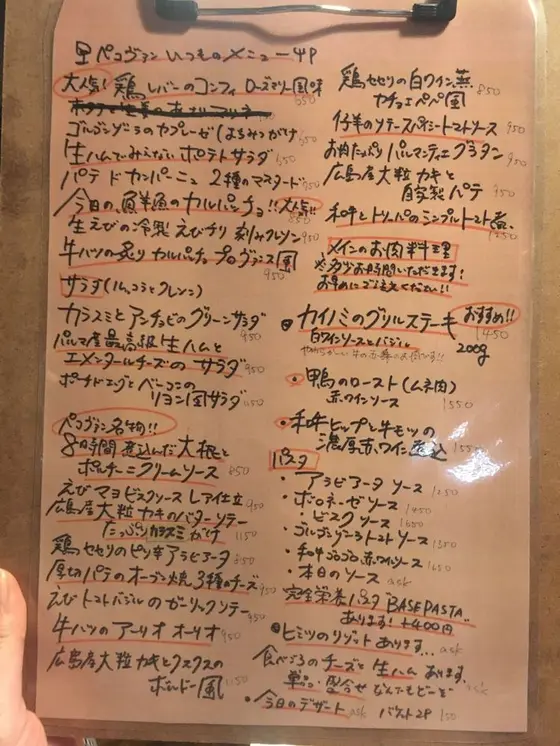 ペコヴァン いつものメニュー
大人気! 鶏レバーのコンフィ ローズマリー風味 550
ゴルゴンゾーラのカプレーゼ はちみつがけ
生ハムでみえない ポテトサラダ 650
パテドカンパーニュ 2種のマスタード 850
今日の鮮魚のカルパッチョ!! 大人気!! 850
生えびの冷製 えびチリ 刻みクレソン 950
牛ハツの炙り カルパッチョ プロヴァンス風 950
サラダ(ルッコラとクレソン)
カラスミとアンチョビのグリーンサラダ 950
パルマ産最高級生ハムと
エメンタールチーズの サラダ 950
ポーチドエッグと ベーコンの
リヨン風サラダ 1150
ペコヴァン名物!!
8時間煮込んだ大根と
ポルチーニクリームソース 850
えびマヨ ビスクソース レア仕立 950
広島産大粒カキのバターソテー
たっぷりカラスミがけ 1150
鶏セセリのピリ辛アラビアータ 850
厚切パテのオーブン焼 3種のチーズ 950
えびトマトバジルのガーリックソテー 950
牛ハツのアーリオ オーリオ 950
広島産大粒カキとクスクスの
ボルドー風 1150
鶏セセリの白ワイン蒸 850
カチョエペペ風
仔羊のソテー スパイシートマトソース 950
お肉たっぷり パルマンティエグラタン 950
広島産大粒カキと
自家製パテ 950
和牛とトリッパのシンプルトマト煮
メインのお肉料理
※多少お時間いただきます!
お早めにご注文ください!!
カイノミのグリルステーキ おすすめ!! 1450
白ワインソースとバジル 200g
鴨のロースト(ムネ肉)
赤ワインソース 1550
和牛ヒップと牛モツの
濃厚赤ワイン煮込 1550
パスタ
・アラビアータ ソース 1250
・ボロネーゼソース 1450
・ビスクソース 1450
・ゴルゴンゾーラトマトソース 1450
・和牛ゴロゴロ赤ワインソース 1650
・本日のソース ask
完全栄養パスタ "BASEPASTA"
あります! +400円
ヒミツのリゾット あります… ask
食べごろのチーズと生ハム あります
単品・盛合せ なんでもどーぞ ask
・今日のデザート ask バゲット2P 150